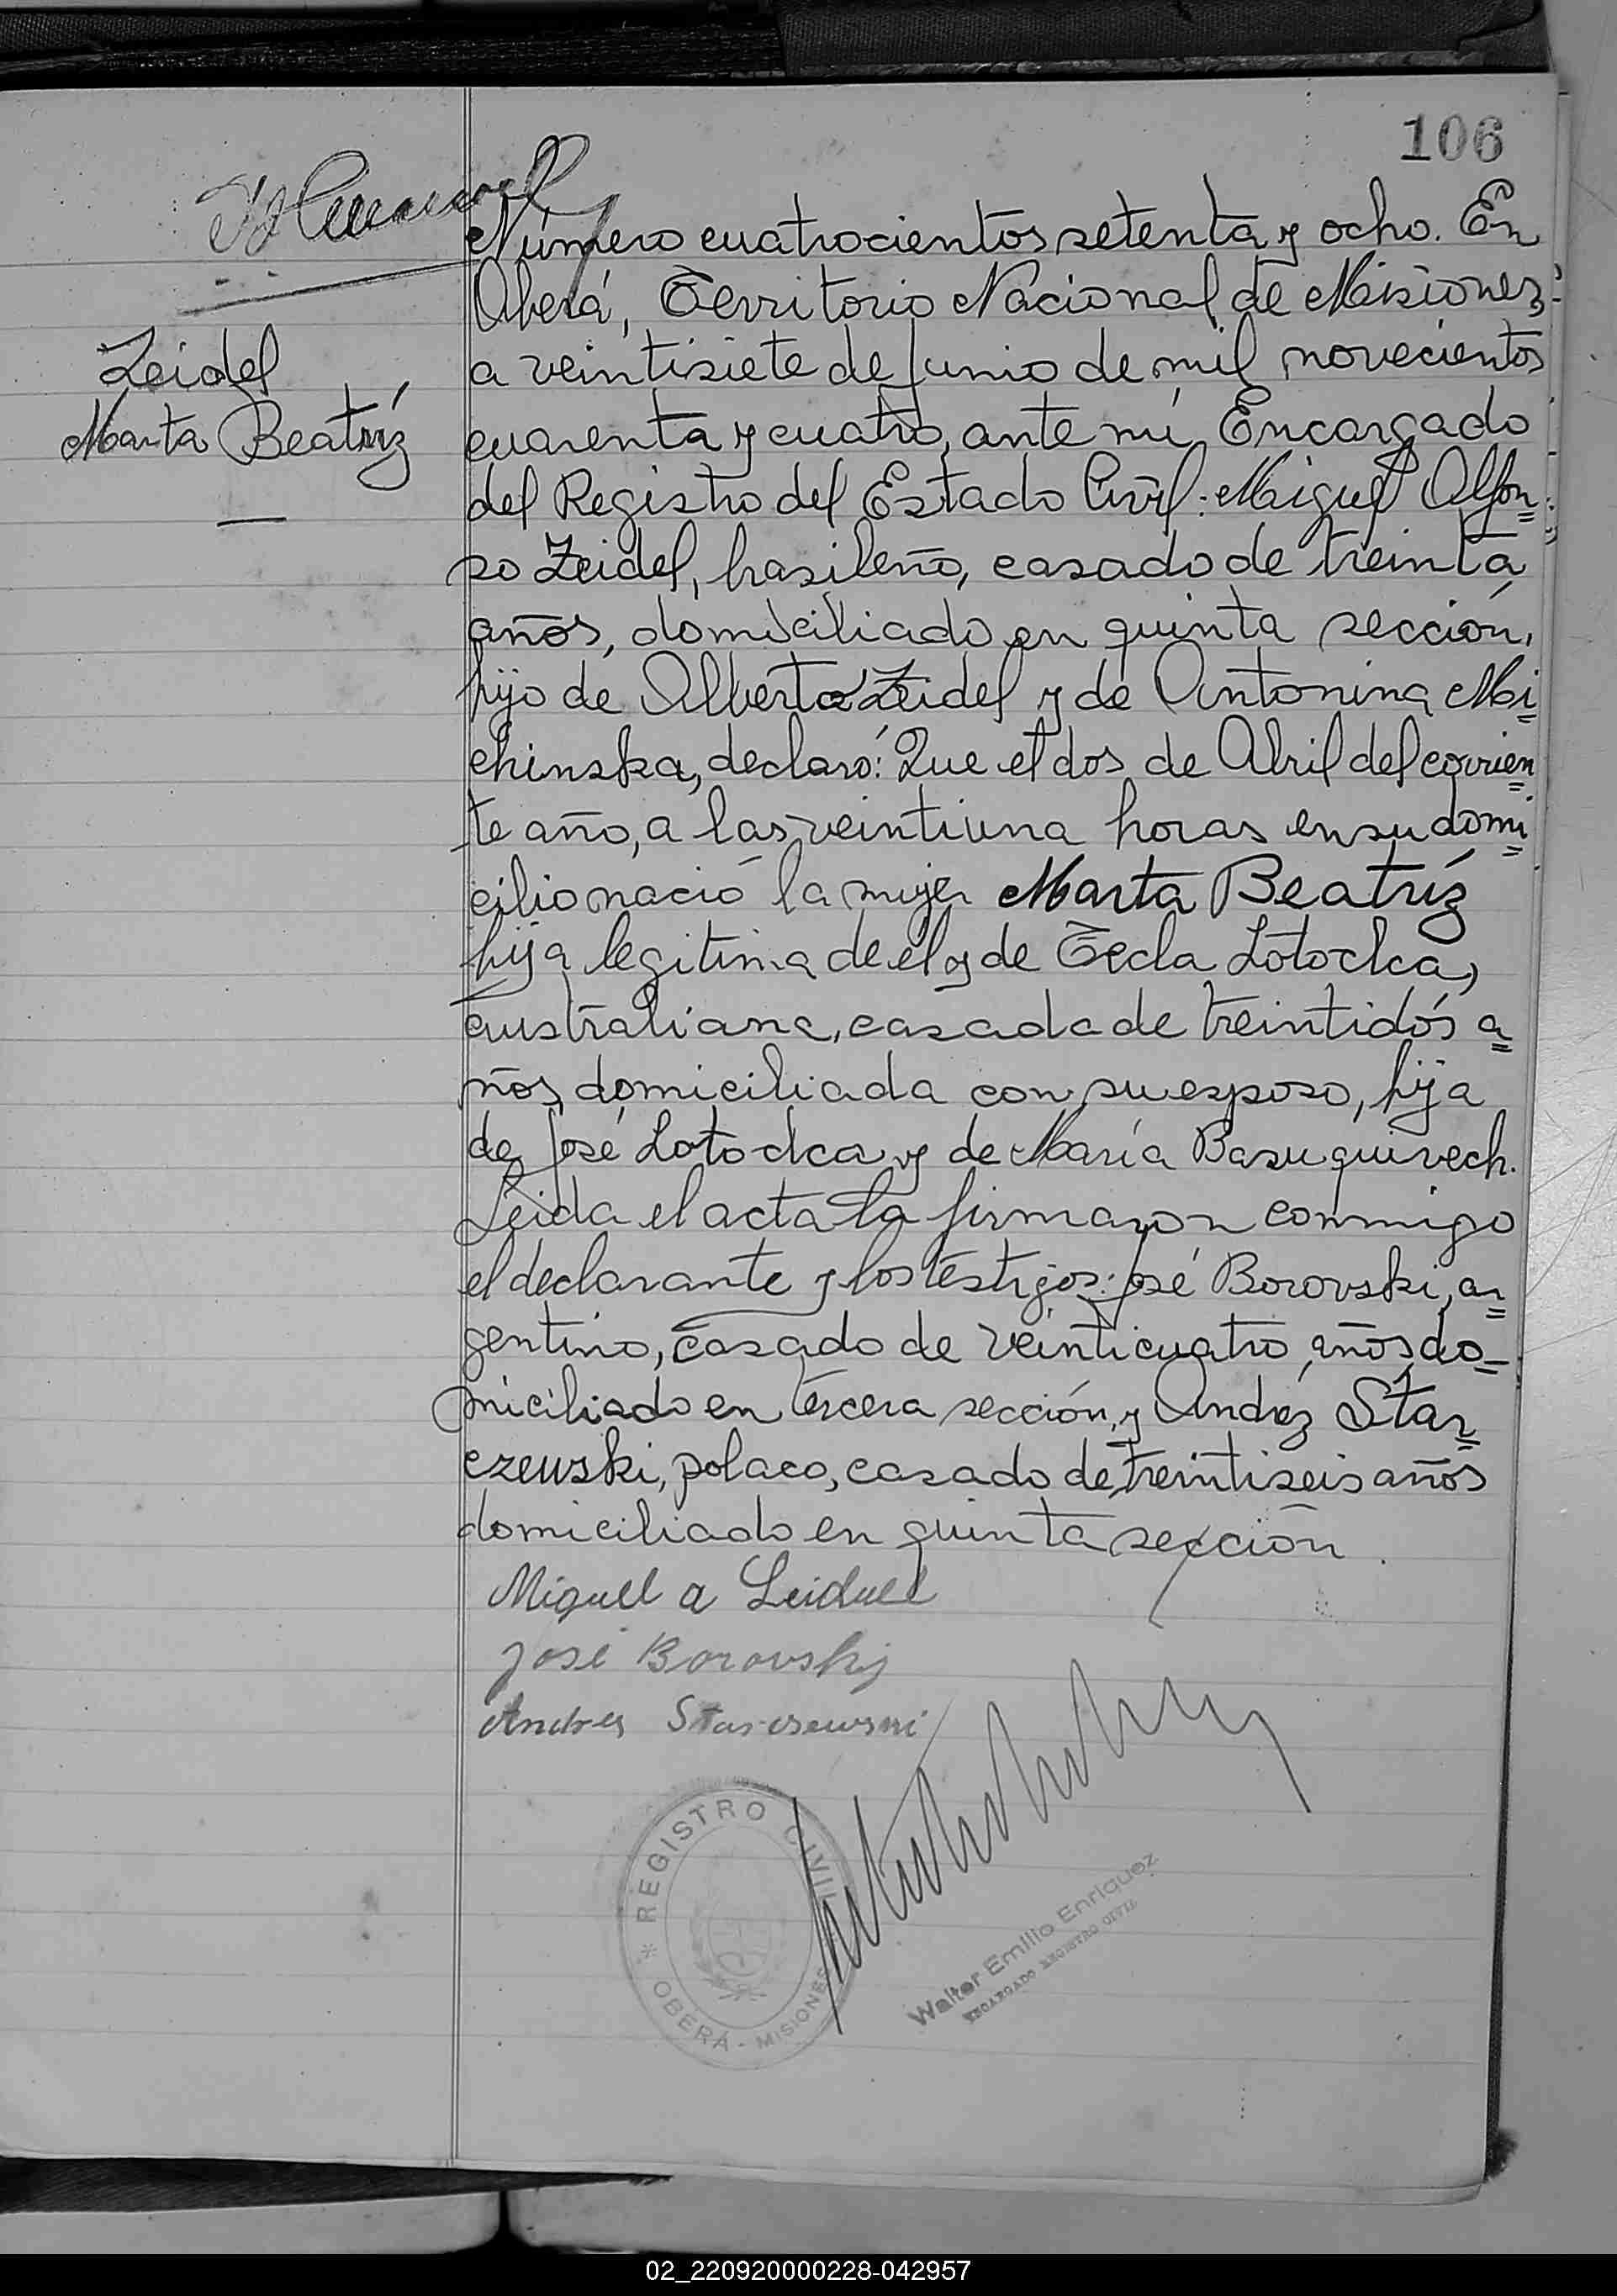 106
Zeidel
Marta Beatríz
Número cuatrocientos setenta y ocho. En
Oberá, Territorio Nacional de Misiones
a veintisiete de Junio de mil novecientos
cuarenta y cuatro, ante mí, Encargado
del Registro del Estado Civil: Miguel Alfon=
so Zeidel, brasileño, casado de treinta
años, domiciliado en quinta sección,
hijo de Alberto Zeidel y de Antonina Mi=
chinska, declaró: Que el dos de Abril del corrien=
te año, a las veintiuna horas en su domi=
cilio nació la mujer Marta Beatríz
hija legitima de el y de Tecla Lotocka,
australiana, casada de treintidós a=
ños, domiciliada con su esposo, hija
de José Lotocka y de María Basuquivech.
Leida el acta la firmaron conmigo
el declarante y los testigos: José Borovski, ar=
gentino, casado de veinticuatro años do=
miciliado en tercera sección, y Andréz Star=
czewski, polaco, casado de treintiseis años
domiciliado en quinta sección.
Miguel a Zeidel
José Borovski
Andres Starczewski
REGISTRO CIVIL
* OBERÁ - MISIONES
Walter Emilio Enriquez
ENCARGADO REGISTRO CIVIL
02_220920000228-042957